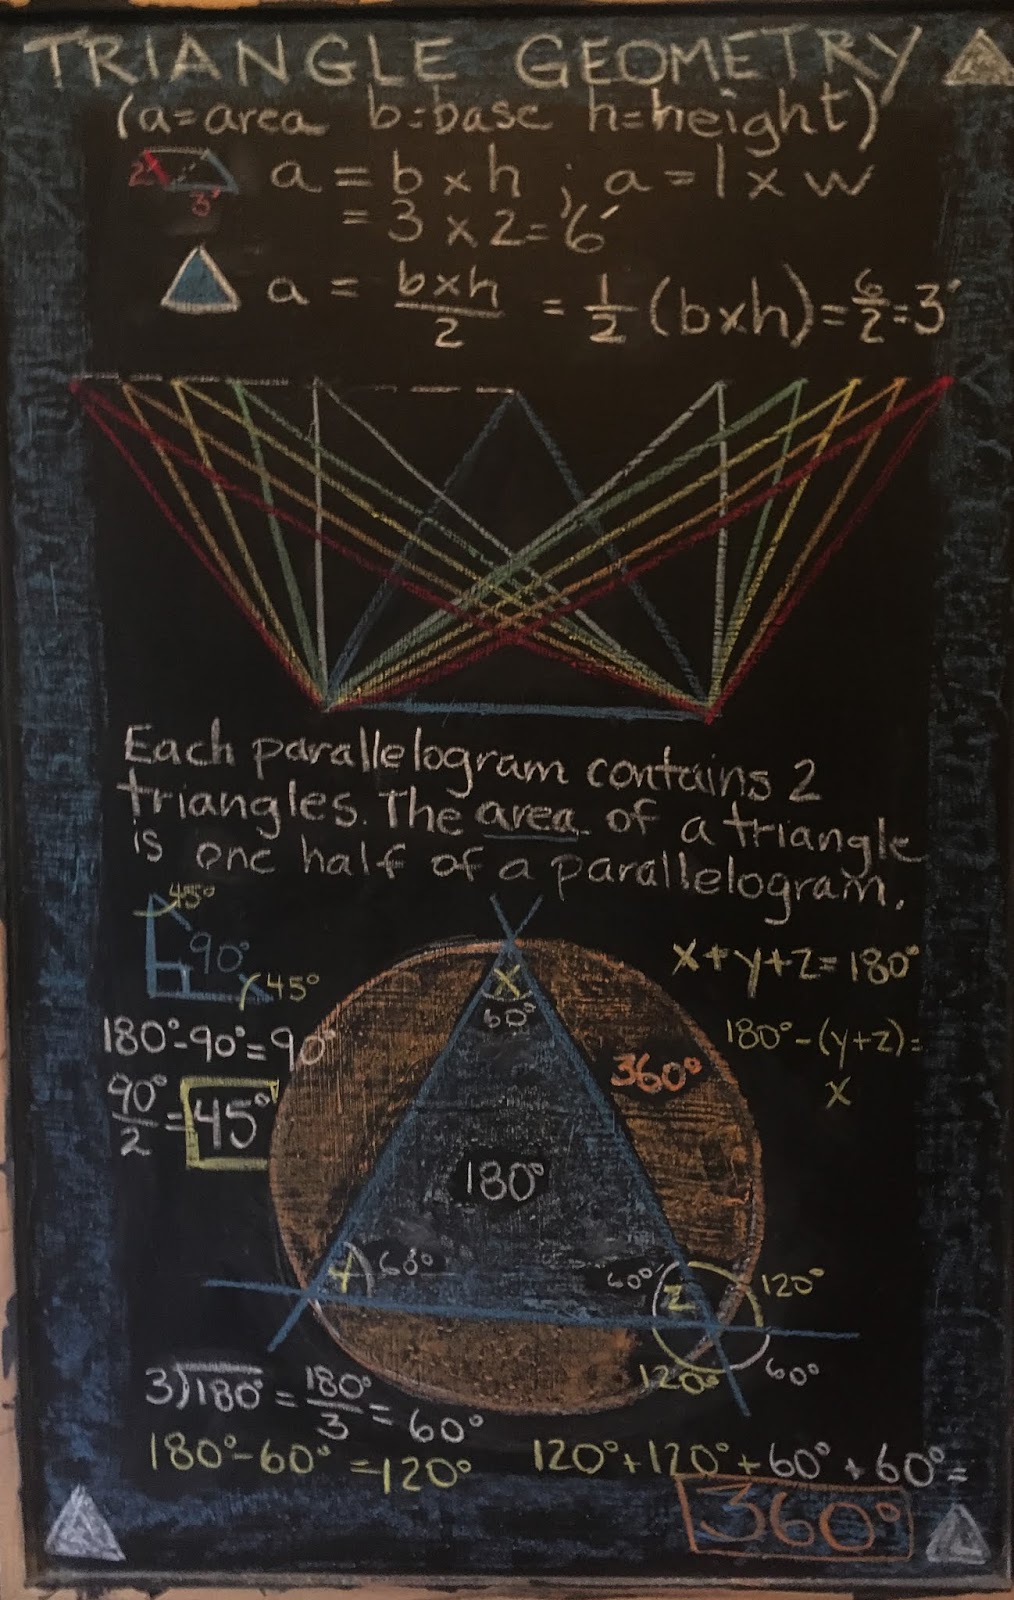 TRIANGLE GEOMETRY
(a=area b=base h=height)
2' 3' a = b x h ; a = l x w
= 3 x 2 = 6'
a = b x h / 2 = 1/2 (b x h) = 6/2 = 3'
Each parallelogram contains 2
triangles. The area of a triangle
is one half of a parallelogram.
45°
90°
45°
180°-90°=90°
90°/2 = 45°
x+y+z=180°
180°-(y+z)=
x
X
60°
360°
180°
Y 60°
60° Z 120°
120° 60°
3)180° = 180°/3 = 60°
180°-60°=120°
120°+120°+60°+60°=
360°